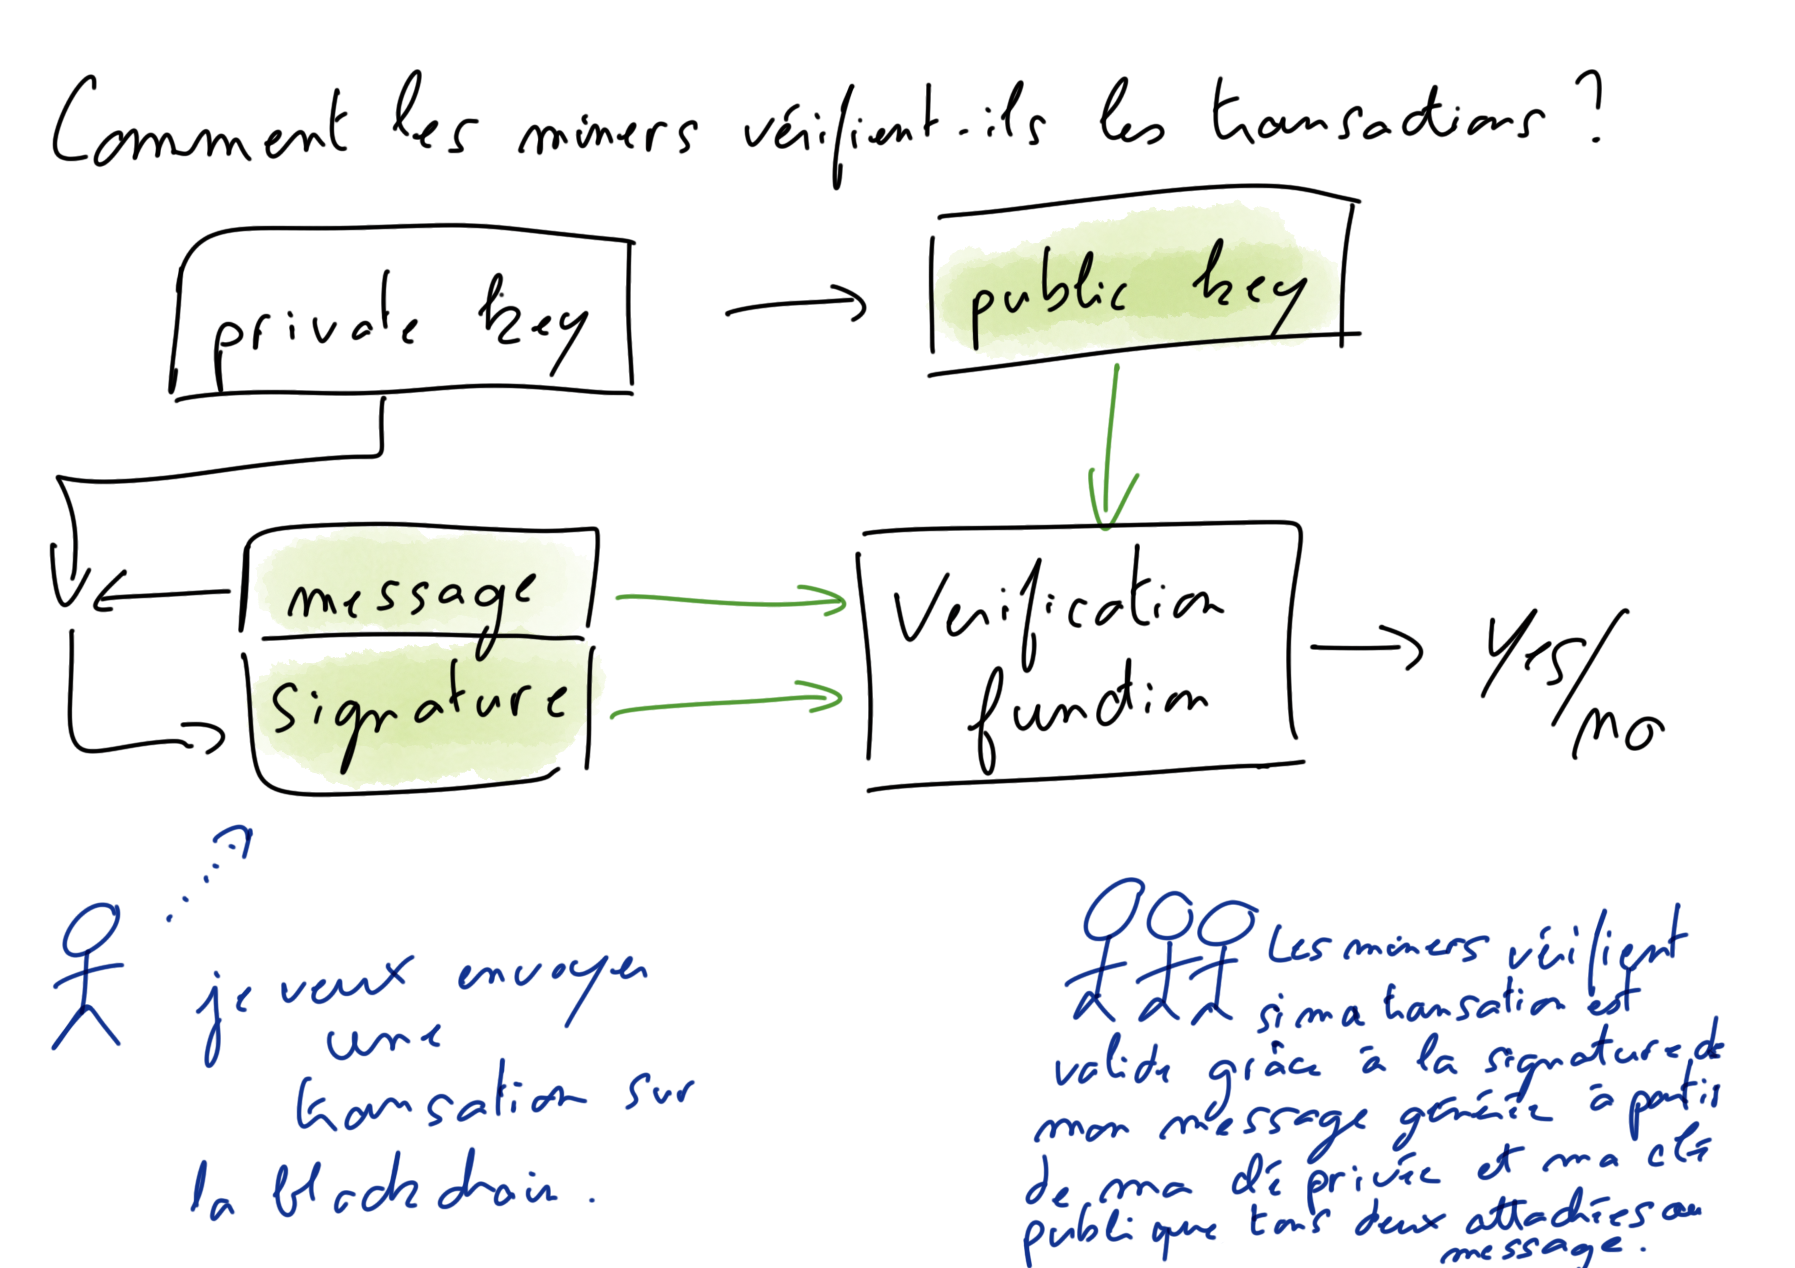 Comment les miners vérifient-ils les transactions ?
private key
public key
message
signature
Verification
function
Yes/
no
je veux envoyer
une
transation sur
la blockchain.
Les miners vérifient
si ma transation est
valide grâce à la signature de
mon message générée à partir
de ma clé privée et ma clé
publique tous deux attachées au
message.